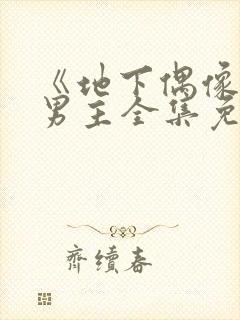 《地下偶像
男主全集免
齐续春